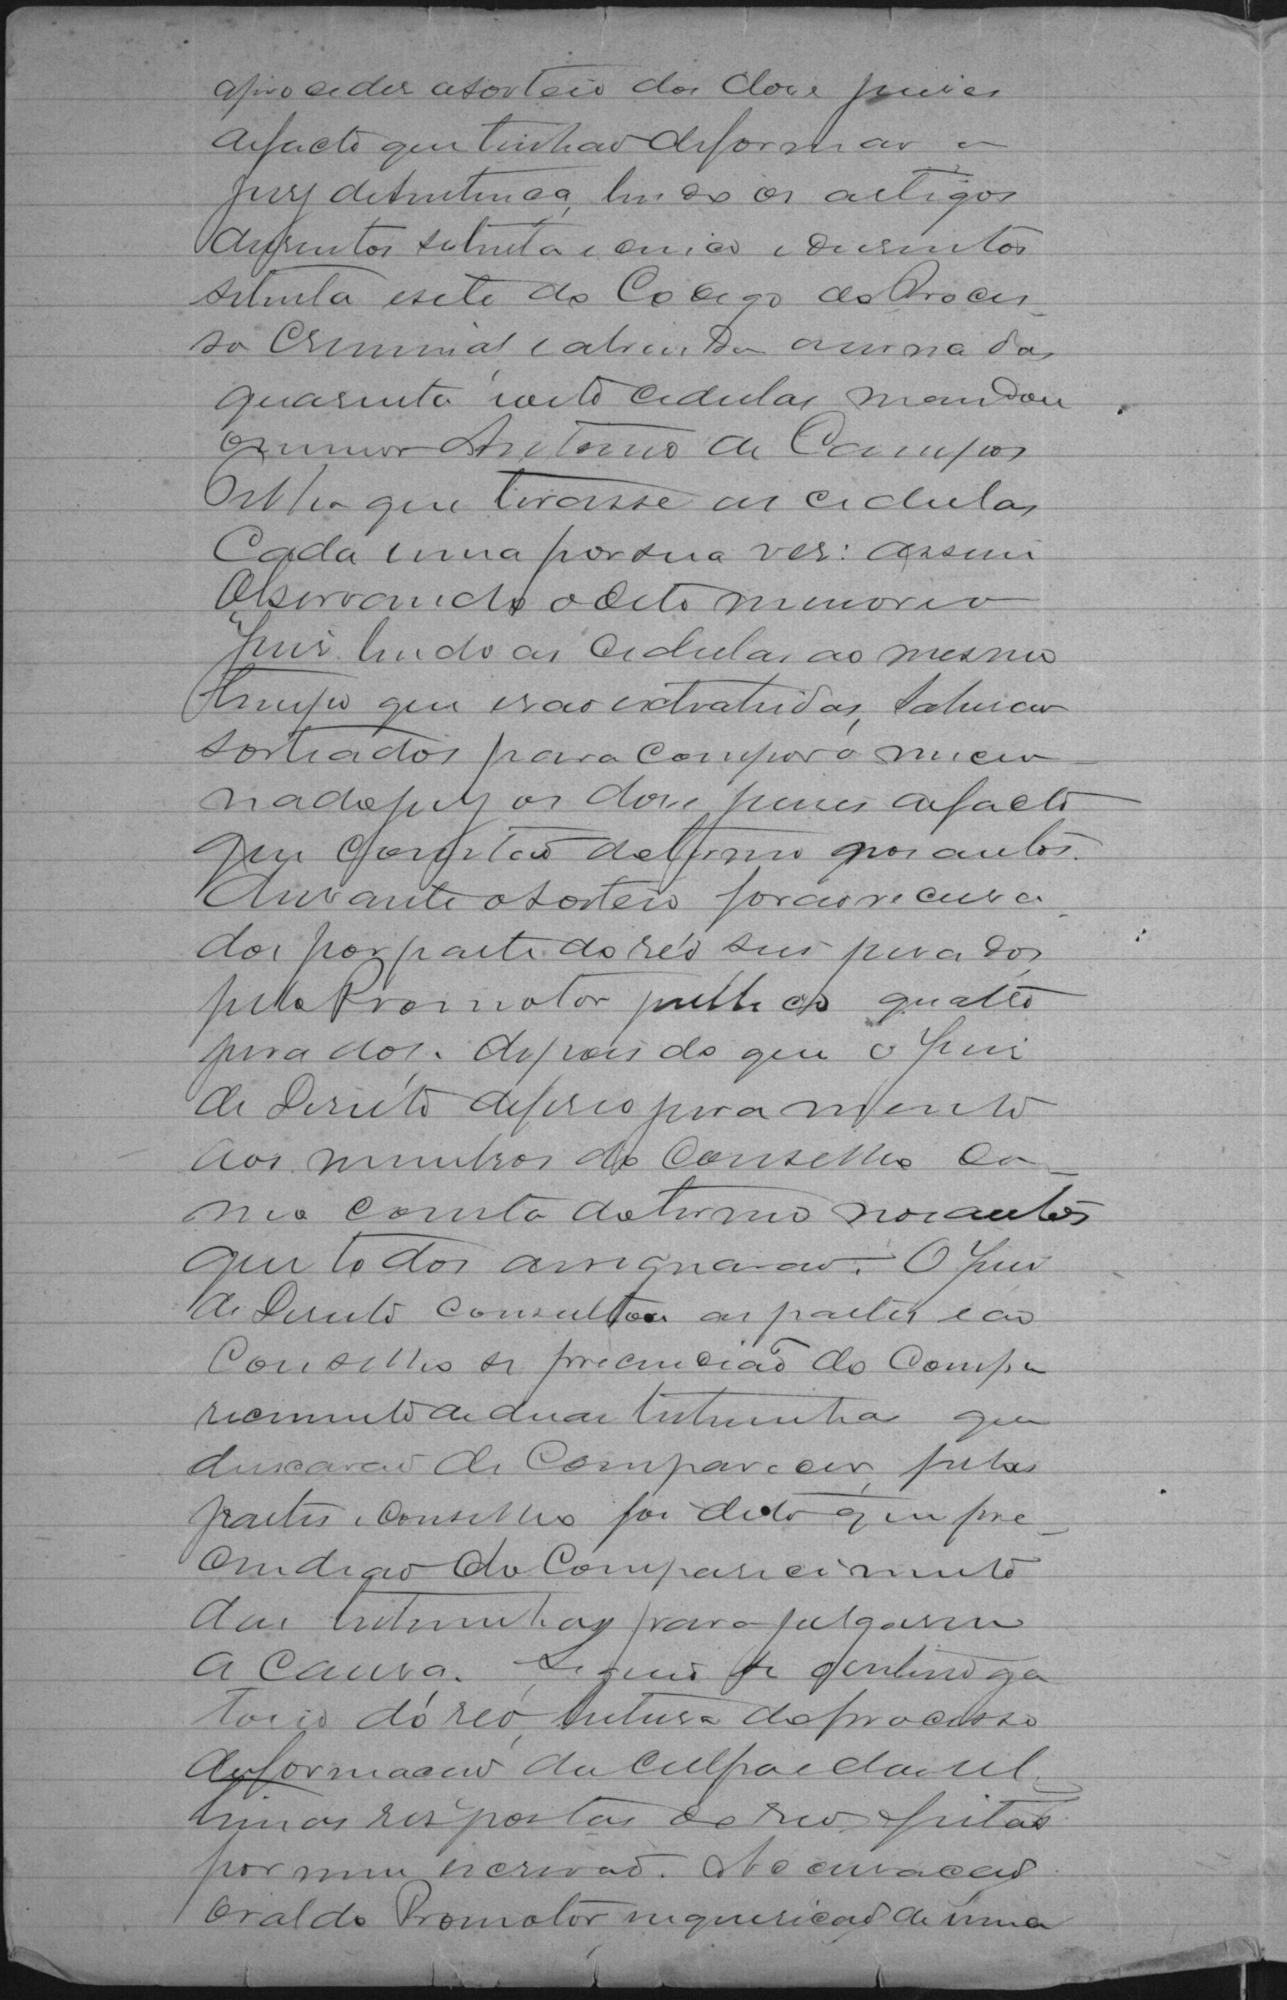 a proceder a sorteio dos dose juises
de facto que tinhão de formar o
jury de sentença, leu os artigos
dusentos setenta e cinco e dusentos
setenta e sete do Codego do Proces-
so Criminal e abrindo a urna das
quarenta e oito cedulas mandou
o menor Antonio de Campos
que tirasse as cedulas
Cada uma por sua ves: assim
Observando o dito menor e o
Juis lendo as cedulas ao mesmo
tempo que erão extrahidas, sahirão
sorteados para compor o mencio-
nado jury os dose juises de facto
que constão do termo nos autos.
Durante o sorteio forão recusa-
dos por parte do réo seis jurados
pelo Promotor publico quatro
jurados. depois do que o Juis
de Direito deferio juramento
aos membros do Conselho co-
mo consta do termo nos autos
que todos assignarão. O Juis
de Direito consultou as partes e ao
Conselho se precindião do Compa
recimento de duas testemunhas que
deixarão de Comparecer, pelas
partes e conselho foi dito que pre-
cindião do Comparecimento
das testemunhas para julgarem
a Causa. Seguio se o interroga
torio dó réo, leitura do processo
da formação da culpa e das ul-
timas respostas do reo feitas
por mim escrivão. Accusação
oral do Promotor, requisição de uma